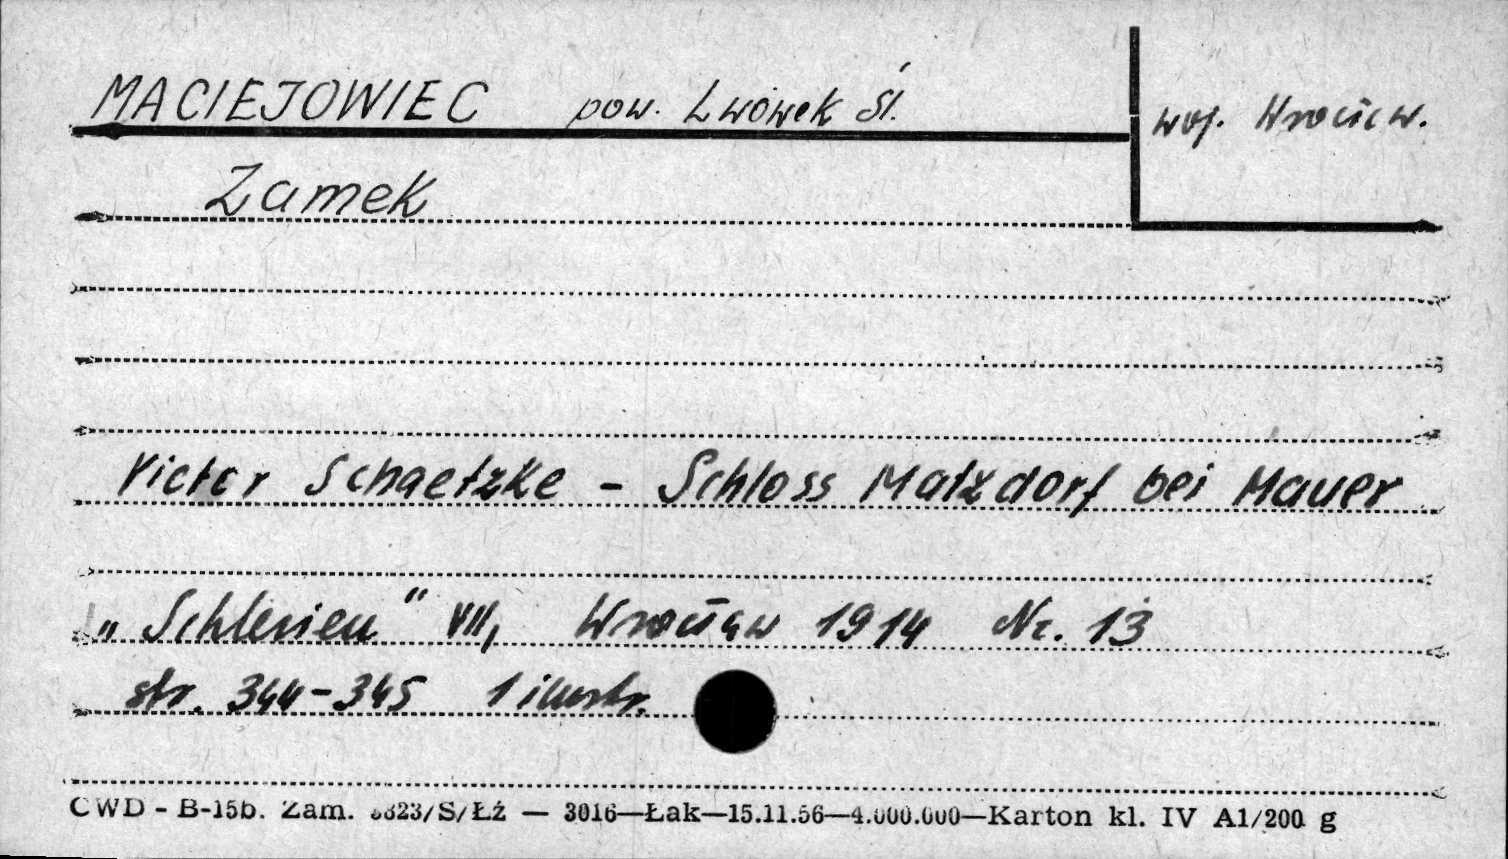 MACIEJOWIEC pow. Lwówek Śl.
woj. Wrocław.
Zamek
Victor Schaetzke - Schloss Matzdorf bei Mauer
„Schlesien" VII, Wrocław 1914 Nr. 13
str. 344-345 1 ilustr.
CWD - B-15b. Zam. 8823/S/Łź — 3016—Łak—15.11.56—4.000.000—Karton kl. IV A1/200 g